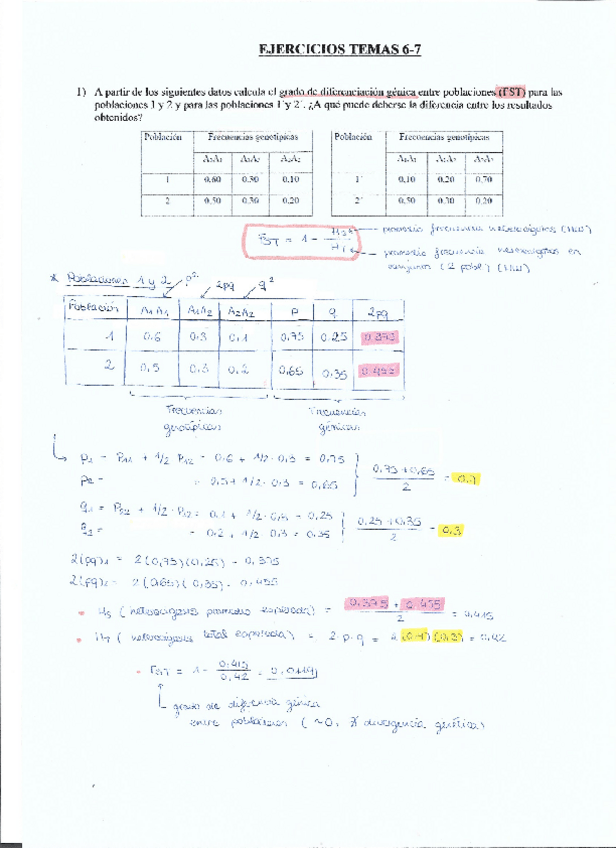 EJERCICIOS TEMAS 6-7
1) A partir de los siguientes datos calcula el grado de diferenciación génica entre poblaciones (FST) para las
poblaciones 1 y 2 y para las poblaciones 1´y 2´. ¿A qué puede deberse la diferencia entre los resultados
obtenidos?
Población Frecuencias genotípicas Población Frecuencias genotípicas
A₁A₁ A₁A₂ A₂A₂ A₁A₁ A₁A₂ A₂A₂
1 0.60 0.30 0.10 1´ 0.10 0.20 0.70
2 0.50 0.30 0.20 2´ 0.50 0.30 0.20
FST = 1 - HS / HT
promedio frecuencia heterocigotos (HW)
promedio frecuencia heterocigotos en
conjunto (2 pobl) (HW)
* Poblaciones 1 y 2 p² 2pq q²
Población A₁A₁ A₁A₂ A₂A₂ p q 2pq
1 0.6 0.3 0.1 0.75 0.25 0.375
2 0.5 0.3 0.2 0.65 0.35
Frecuencias genotípicas
Frecuencias génicas
p₁ = P₁₁ + 1/2 P₁₂ = 0.6 + 1/2 · 0.3 = 0.75
p₂ = = 0.5 + 1/2 · 0.3 = 0.65
0.75 + 0.65 / 2 = 0.7
q₁ = P₂₂ + 1/2 · P₁₂ = 0.1 + 1/2 · 0.3 = 0.25
q₂ = = 0.2 + 1/2 · 0.3 = 0.35
0.25 + 0.35 / 2 = 0.3
2(pq)₁ = 2(0.75)(0.25) = 0.375
2(pq)₂ = 2(0.65)(0.35) = 0.455
• HS (heterocigosis promedio esperada) = 0.375 + 0.455 / 2 = 0.415
• HT (heterocigosis total esperada) = 2·p·q = 2(0.7)(0.3) = 0.42
• FST = 1 - 0.415 / 0.42 = 0.0119
grado de diferencia génica
entre poblaciones (~0, divergencia genética)